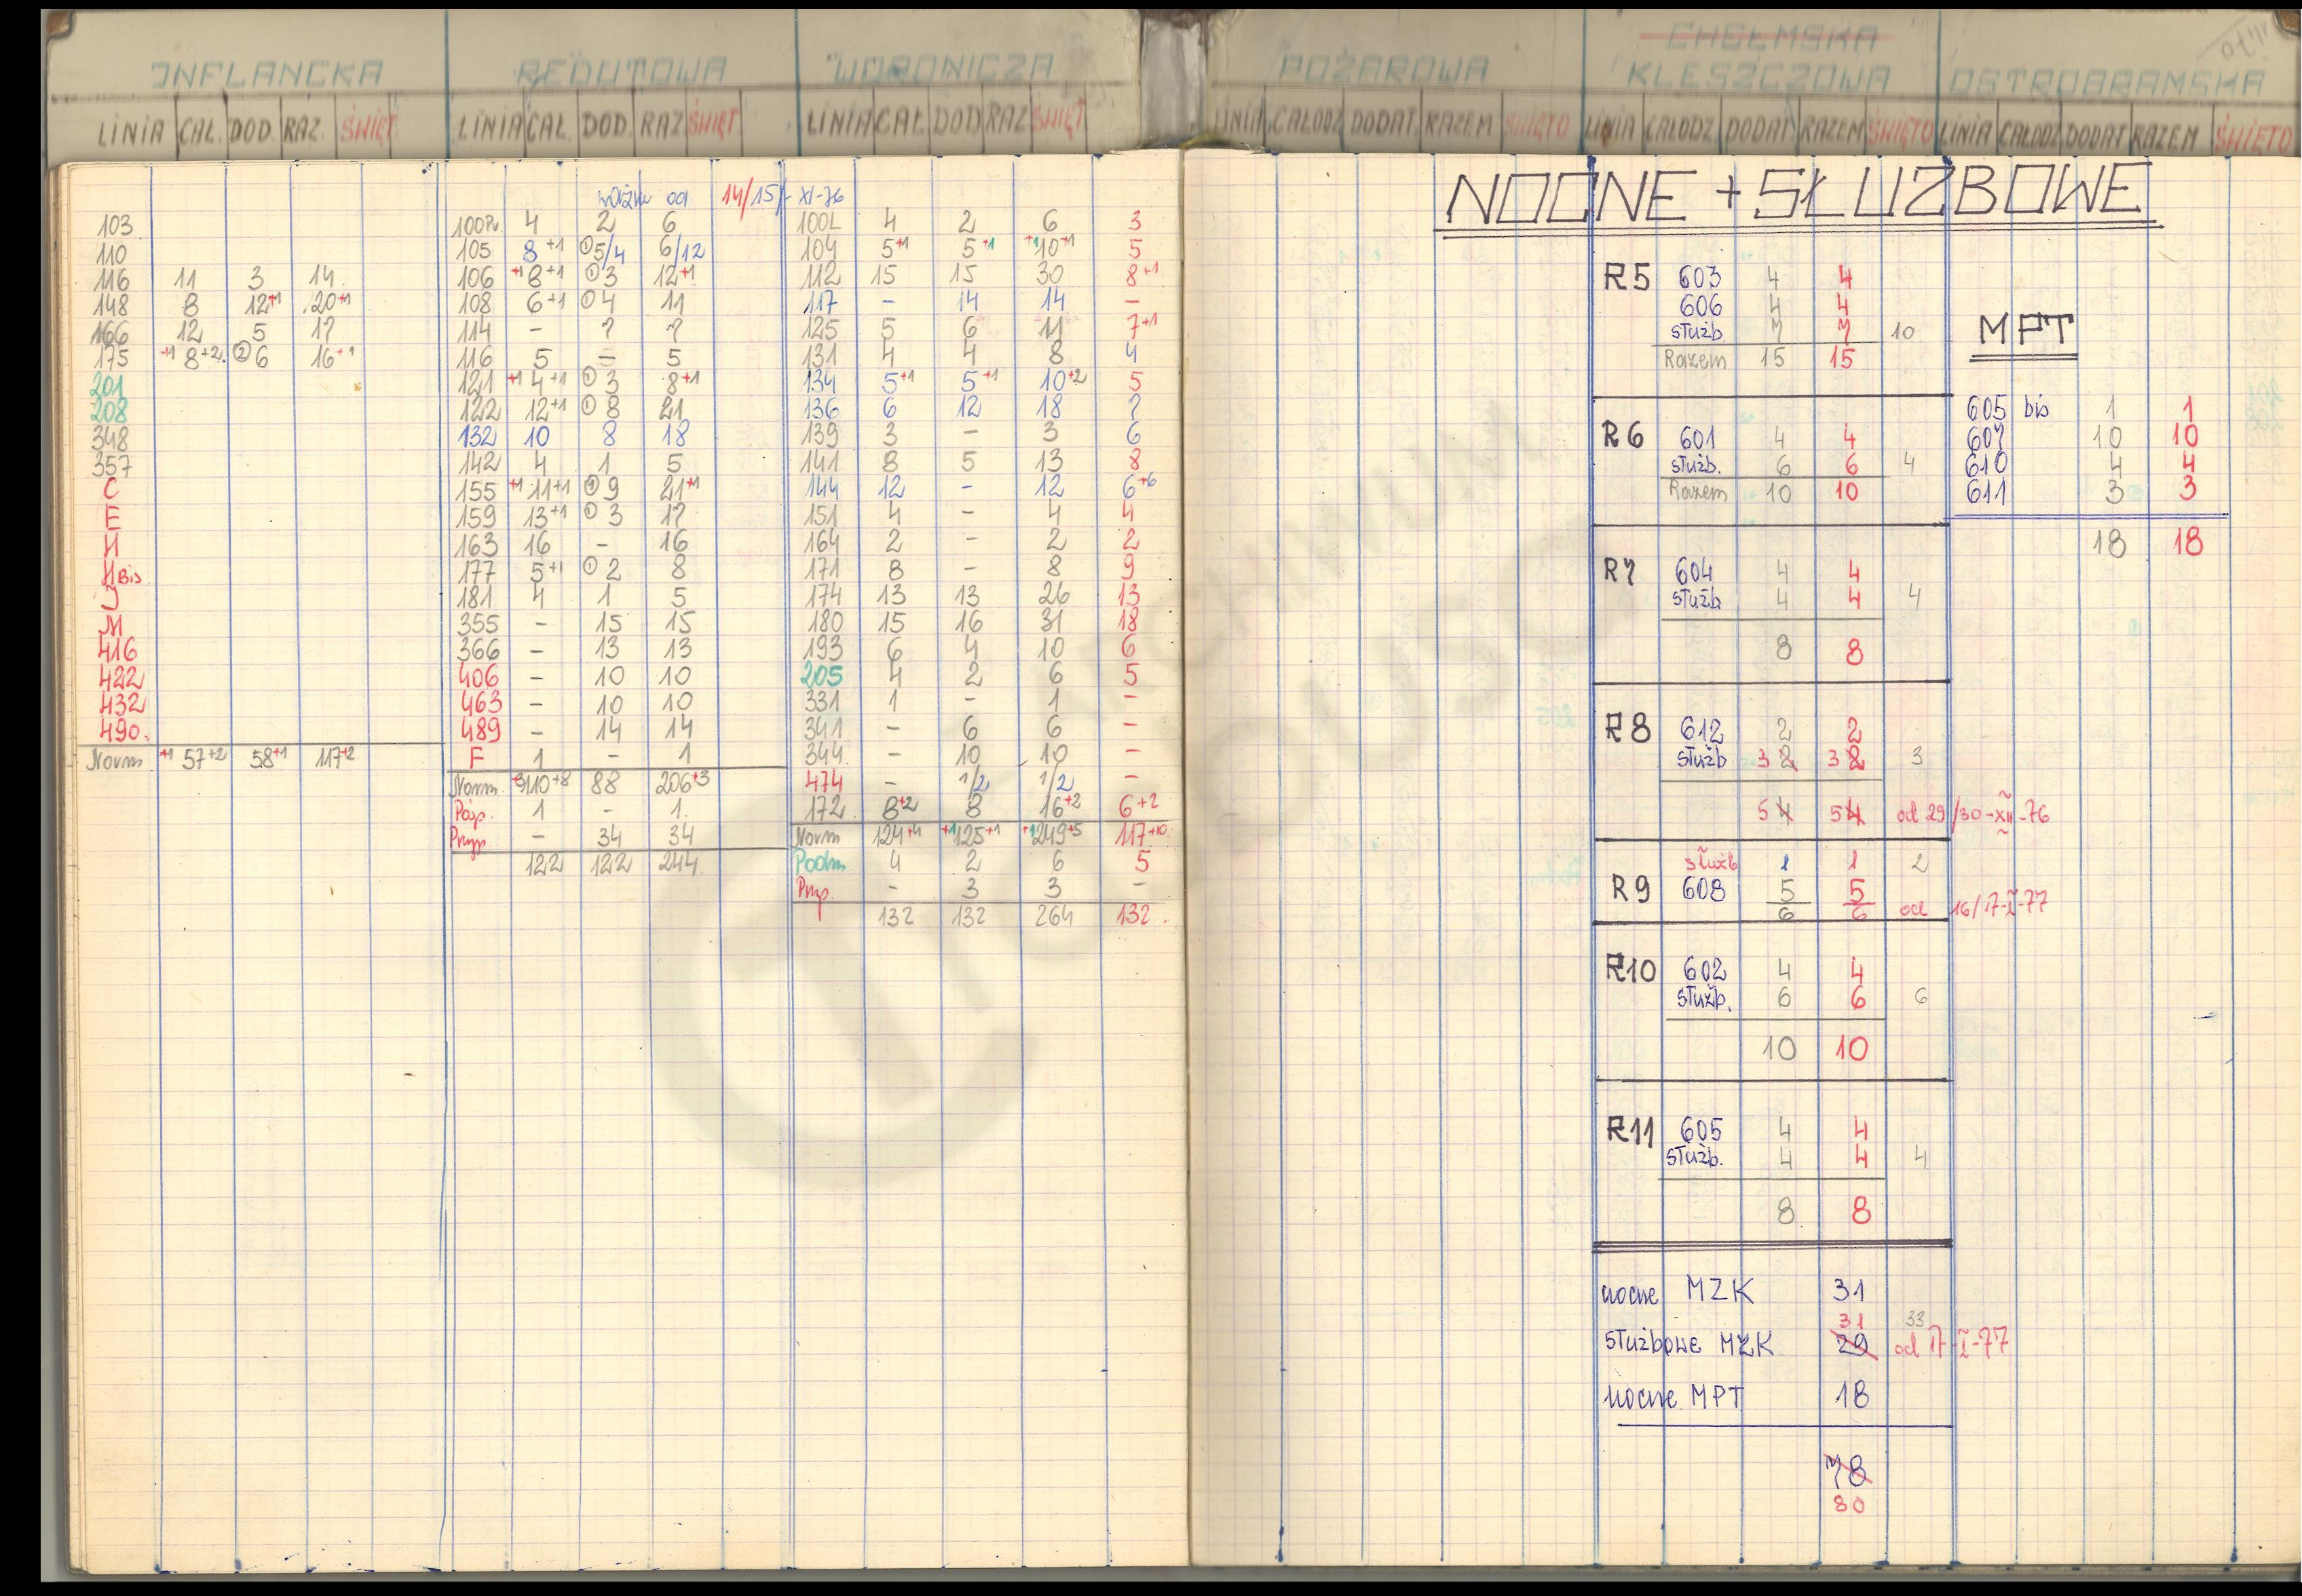 INFLANCKA REDUTOWA WORONICZA POŻAROWA CHEŁMSKA KLESZCZOWA OSTROBRAMSKA
LINIA CAŁ. DOD. RAZ. ŚWIĘT. LINIA CAŁ. DOD. RAZ ŚWIĘT LINIA CAŁ. DOD RAZ ŚWIĘT LINIA CAŁODZ DODAT. RAZEM ŚWIĘTO LINIA CAŁODZ DODAT RAZEM ŚWIĘTO LINIA CAŁODZ DODAT RAZEM ŚWIĘTO
103
110
116 11 3 14
148 8 12+1 20+1
166 12 5 17
175 +1 8+2 ② 6 16+1
201
208
348
357
C
E
H
H Bis
J
M
416
422
432
490
Norm +1 57+2 58+1 117+2
ważne od 14/15/- XI-76
100P 4 2 6
105 8+1 ① 5/4 6/12
106 +1 8+1 ① 3 12+1
108 6+1 ① 4 11
114 - 7 7
116 5 - 5
121 +1 4+1 ① 3 8+1
122 12+1 ① 8 21
132 10 8 18
142 4 1 5
155 +1 11+1 ① 9 21+1
159 13+1 ① 3 17
163 16 - 16
177 5+1 ① 2 8
181 4 1 5
355 - 15 15
366 - 13 13
406 - 10 10
463 - 10 10
489 - 14 14
F 1 - 1
Norm +3 110+8 88 206+3
Posp. 1 - 1
Przysp. - 34 34
122 122 244
100L 4 2 6 3
104 5+1 5+1 +1 10+1 5
112 15 15 30 8+1
117 - 14 14 -
125 5 6 11 7+1
131 4 4 8 4
134 5+1 5+1 10+2 5
136 6 12 18 7
139 3 - 3 6
141 8 5 13 8
144 12 - 12 6+6
151 4 - 4 4
164 2 - 2 2
171 8 - 8 9
174 13 13 26 13
180 15 16 31 18
193 6 4 10 6
205 4 2 6 5
331 1 - 1 -
341 - 6 6 -
344 - 10 10 -
474 - 1/2 1/2 -
172 8+2 8 16+2 6+2
Norm 124+4 +1 125+1 +1 249+5 117+10
Podm 4 2 6 5
Przysp. - 3 3 -
132 132 264 132
NOCNE + SŁUŻBOWE
R5 603 4 4
606 4 4
służb 7 7 10
Razem 15 15
R6 601 4 4
służb. 6 6 4
Razem 10 10
R7 604 4 4
służb 4 4 4
8 8
R8 612 2 2
służb 3 2 3 2 3
5 4 5 4 od 29/30-XII-76
R9 służb 1 1 2
608 5 5
6 6 od 16/17-I-77
R10 602 4 4
służb. 6 6 6
10 10
R11 605 4 4
służb. 4 4 4
8 8
MPT
605 bis 1 1
607 10 10
610 4 4
611 3 3
18 18
nocne MZK 31
31 33
służbowe MZK 29 od 17-I-77
nocne MPT 18
78
80